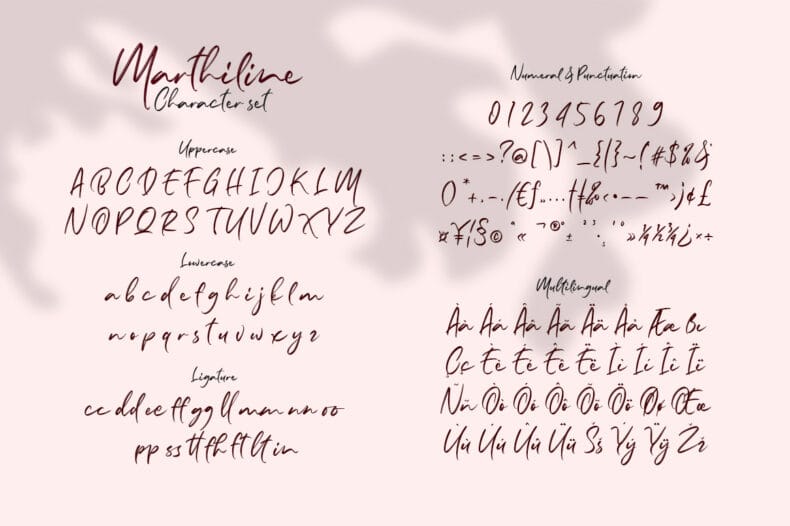 Marthiline
Character set
Uppercase
ABCDEFGHIJKLM
NOPQRSTUVWXYZ
Lowercase
abcdefghijklm
nopqrstuvwxyz
Ligature
cc dd ee ff gg ll mm nn oo
pp ss tt fh ft lt in
Numeral & Punctuation
0123456789
:;<=>?@[\]^_{|}~(!#$%&
©
Multilingual
Àà Áá Ââ Ãã Ää Åå Ææ
Çç Èè Éé Êê Ëë Ìì Íí Îî Ïï
Ññ Òò Óó Ôô Õõ Öö Øø Œœ
Ùù Úú Ûû Üü Šš Ýý Ÿÿ Žž